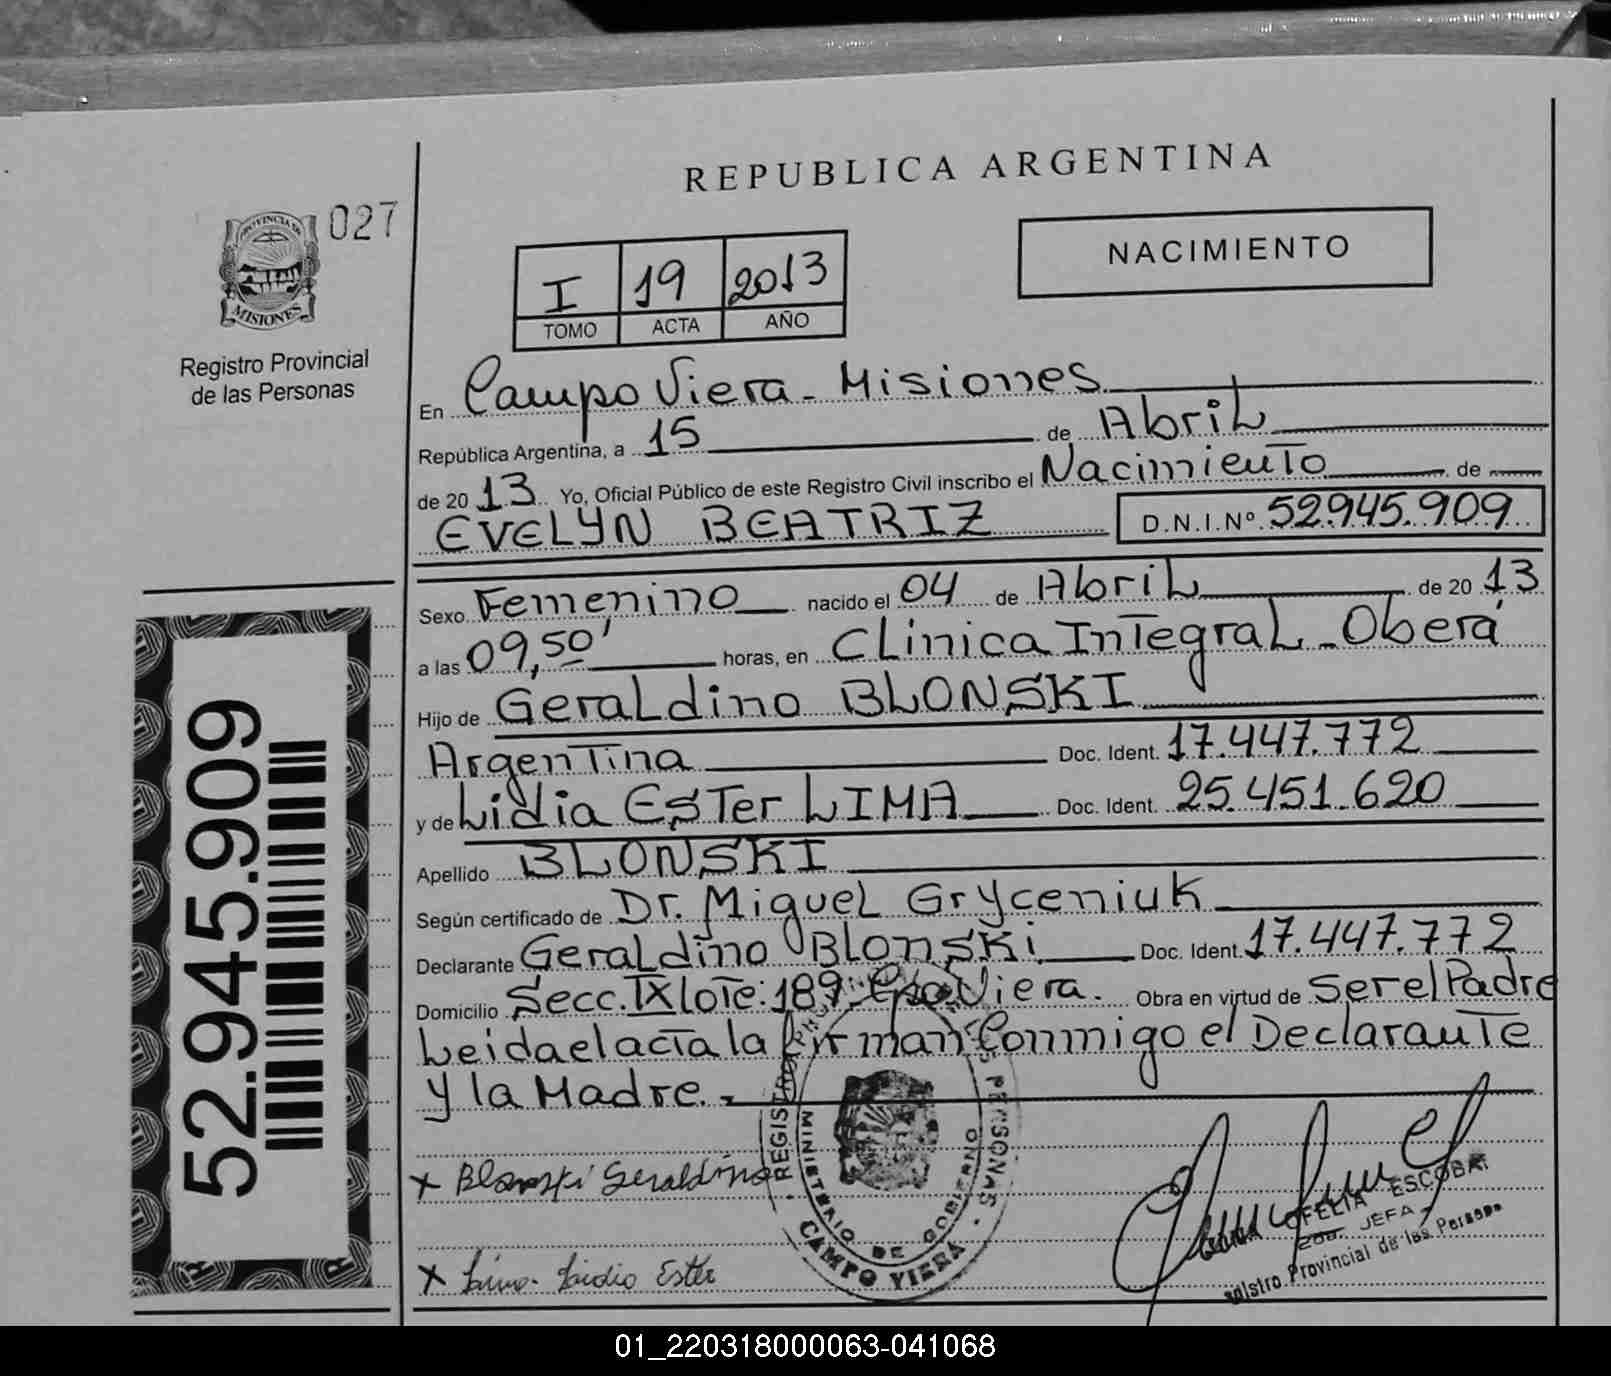 REPUBLICA ARGENTINA
027
PROVINCIA DE
MISIONES
Registro Provincial
de las Personas
NACIMIENTO
I 19 2013
TOMO ACTA AÑO
En Campo Viera - Misiones
República Argentina, a 15 de Abril
de 20 13 Yo, Oficial Público de este Registro Civil inscribo el Nacimiento de
EVELYN BEATRIZ D.N.I.Nº 52.945.909
Sexo Femenino nacido el 04 de Abril de 20 13
a las 09,50' horas, en Clinica Integral - Oberá
Hijo de Geraldino BLONSKI
Argentina Doc. Ident. 17.447.772
y de Lidia Ester LIMA Doc. Ident. 25.451.620
Apellido BLONSKI
Según certificado de Dr. Miguel Gryceniuk
Declarante Geraldino Blonski Doc. Ident. 17.447.772
Domicilio Secc. IX lote: 189 - Cpo Viera. Obra en virtud de Ser el Padre
Leida el acta la firman Conmigo el Declarante
y la Madre. -
x Blonski Geraldino
x Lima Lidia Ester
PERSONAS
MINISTERIO DE GOBIERNO
CAMPO VIERA
OFELIA ESCOBAR
JEFA
Provincial de las Persona
52.945.909
01_220318000063-041068